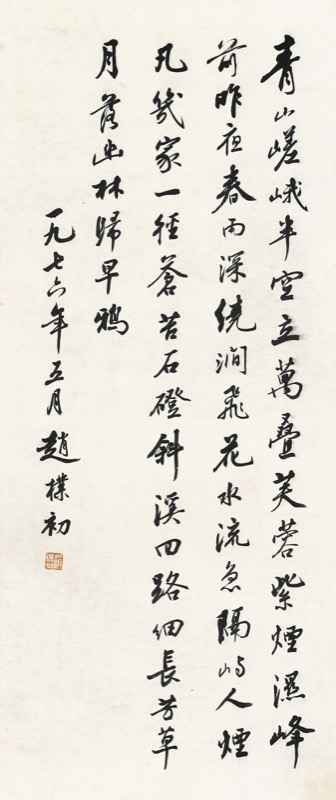 青山嵯峨半空立萬疊芙蓉紫煙濕峰
前昨夜春雨深繞澗飛花水流急隔屿人煙
凡幾家一徑蒼苔石磴斜溪回路細長芳草
月落幽林歸早鴉
一九七六年五月趙樸初